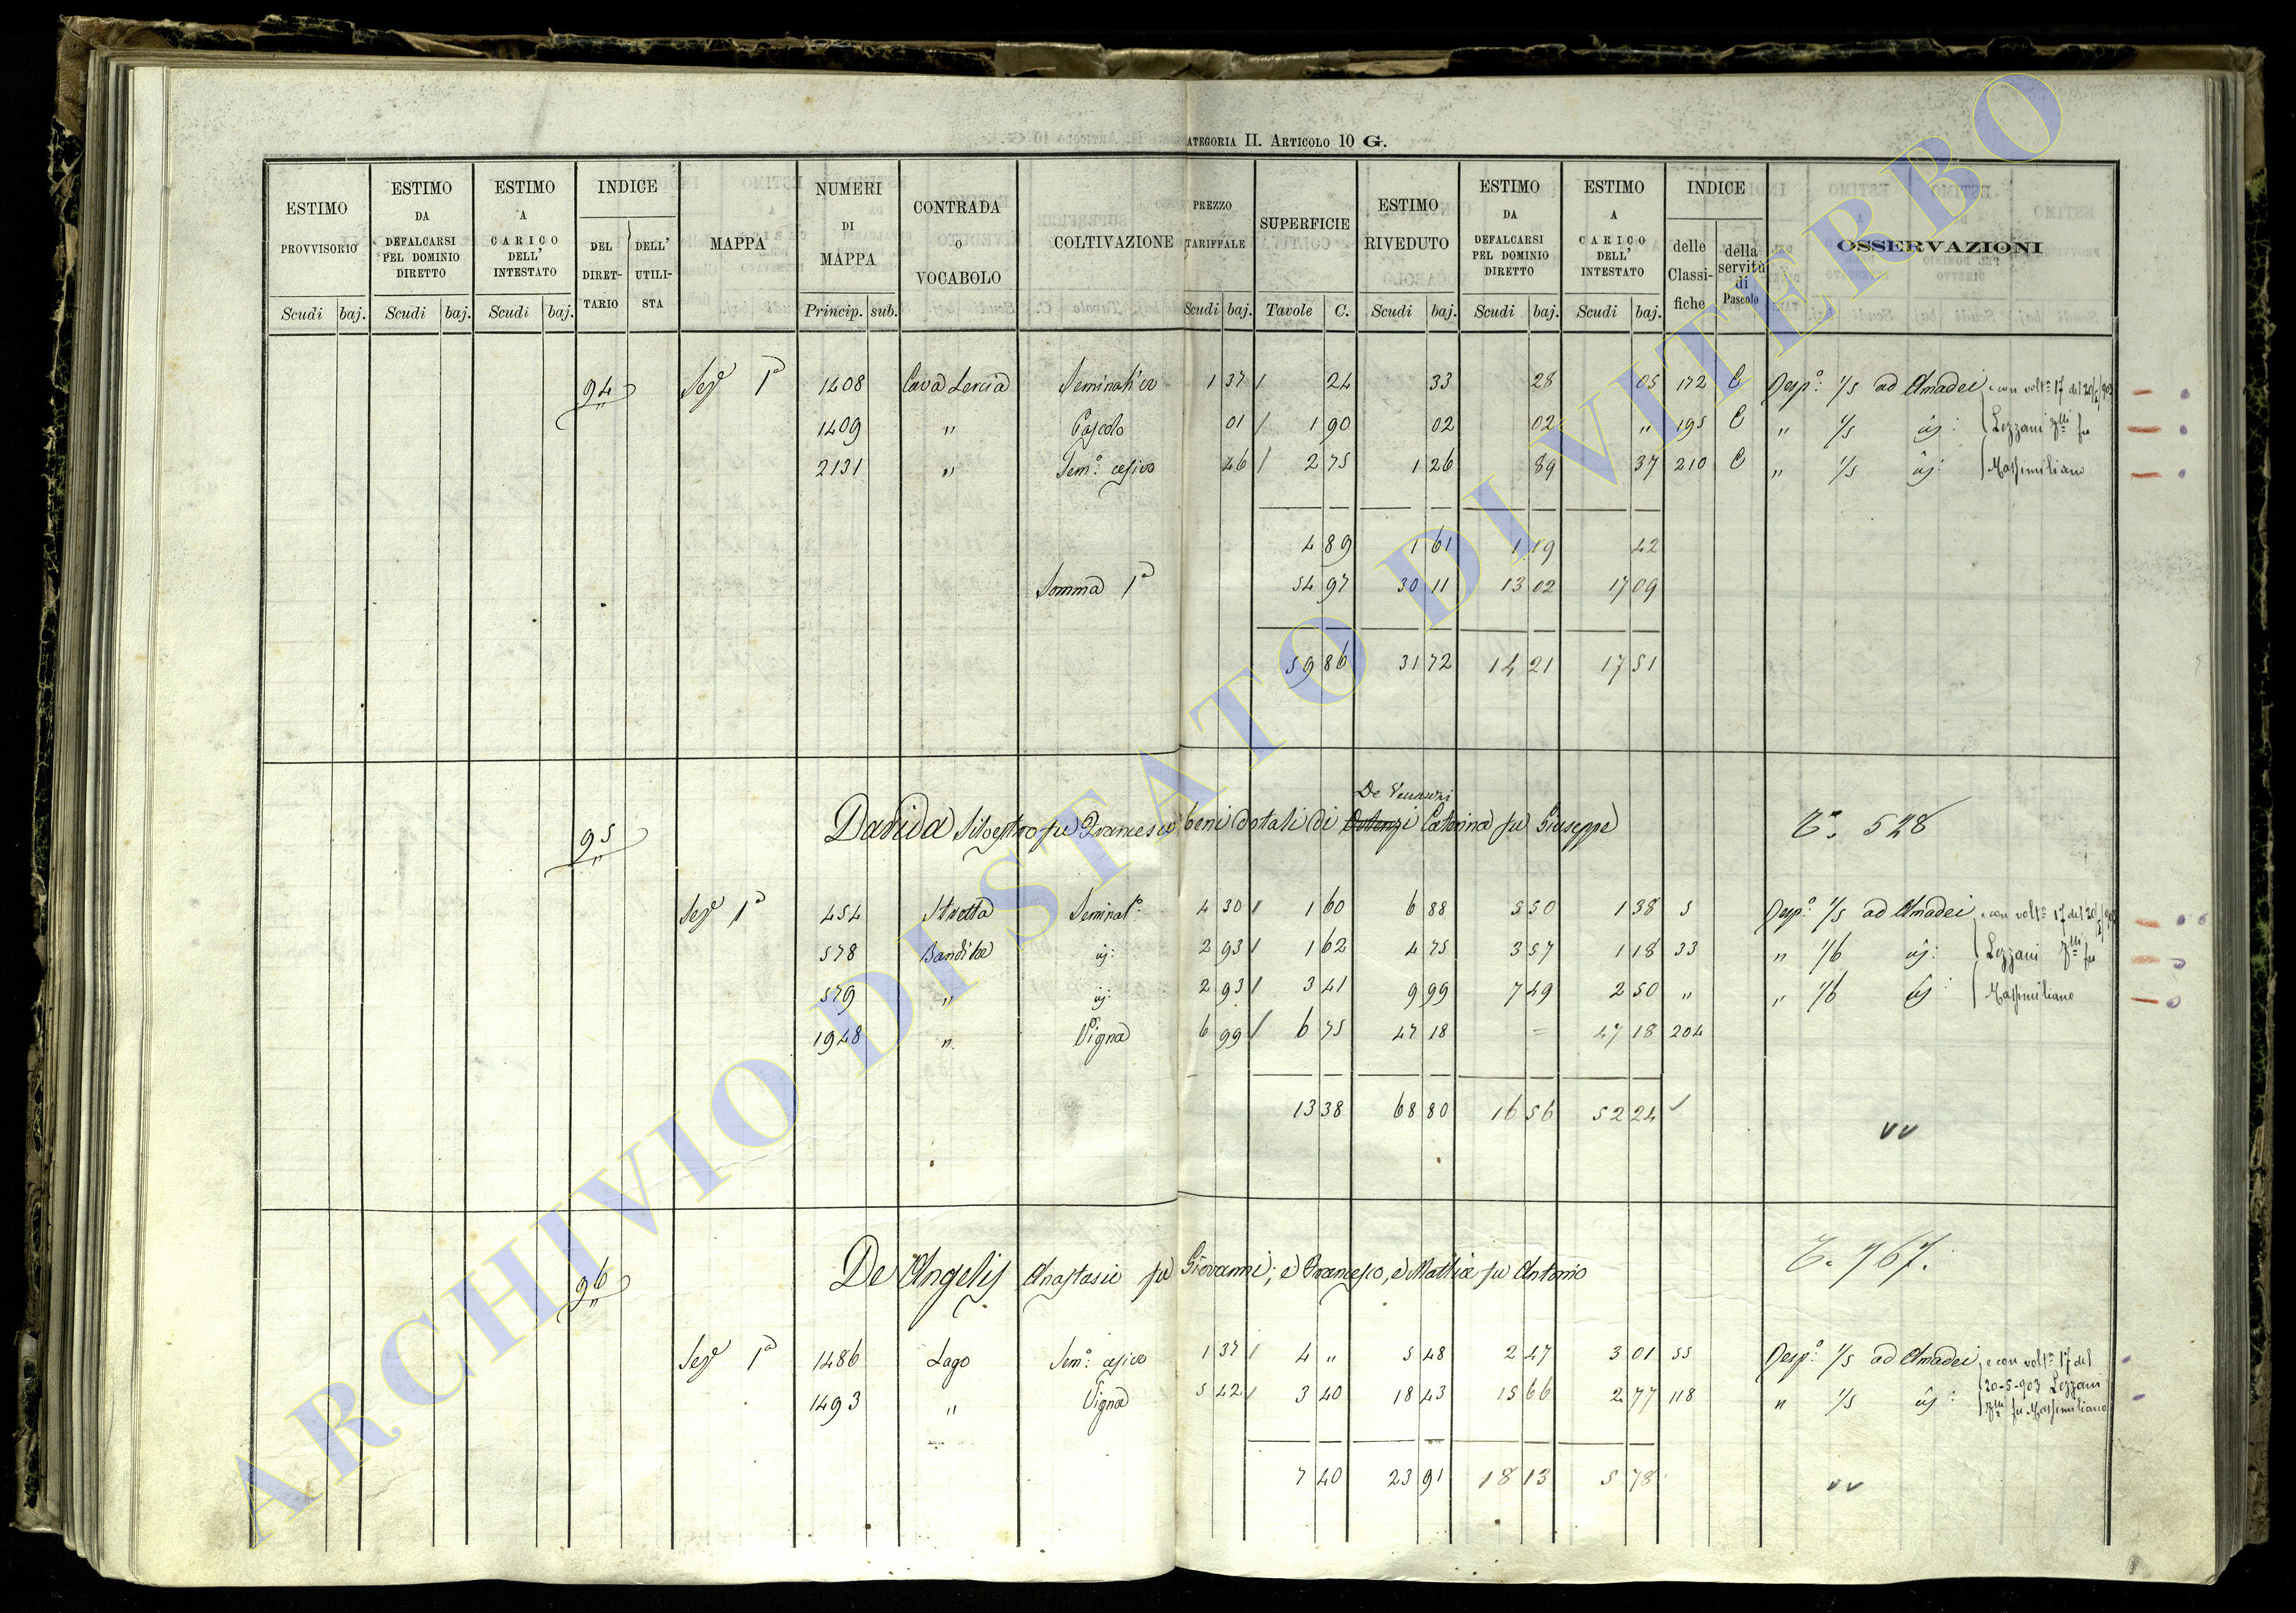 CATEGORIA II. ARTICOLO 10 G.
ESTIMO PROVVISORIO Scudi baj. | ESTIMO DA DEFALCARSI PEL DOMINIO DIRETTO Scudi baj. | ESTIMO A CARICO DELL' INTESTATO Scudi baj. | INDICE DEL DIRET-TARIO DELL' UTILI-STA | MAPPA | NUMERI DI MAPPA Princip. sub. | CONTRADA O VOCABOLO | COLTIVAZIONE | PREZZO TARIFFALE Scudi baj. | SUPERFICIE Tavole C. | ESTIMO RIVEDUTO Scudi baj. | ESTIMO DA DEFALCARSI PEL DOMINIO DIRETTO Scudi baj. | ESTIMO A CARICO DELL' INTESTATO Scudi baj. | INDICE delle Classi-fiche della servitù di Pascolo | OSSERVAZIONI
94 Sezᵉ 1ª 1408 Cava Lercia Seminativo 1 37 / 24 33 28 05 172 C Risp: 1/5 ad Amadei e con voltª 17 del 20/5/903
1409 " Pascolo 01 / 1 90 02 02 " 195 C " 1/5 id: Lezzani flli fu
2131 " Semº: cesivo 46 / 2 75 1 26 89 37 210 C " 1/5 id: Massimiliano
4 89 1 61 1 19 42
Somma 1ª 54 97 30 11 13 02 17 09
59 86 31 72 14 21 17 51
De Venanzi
95 Davida Silvestro fu Francesco beni dotali di Caterina fu Giuseppe 528
Sezᵉ 1ª 454 Stretta Seminatº: 4 30 / 1 60 6 88 5 50 1 38 5 Risp: 1/5 ad Amadei e con voltª 17 del 20/5/903
578 Bandita id: 2 93 / 1 62 4 75 3 57 1 18 33 " 1/6 id: Lezzani flli fu
579 " id: 2 93 / 3 41 9 99 7 49 2 50 " " 1/6 id: Massimiliano
1948 " Vigna 6 99 / 6 75 47 18 = 47 18 204
13 38 68 80 16 56 52 24 ✓
vv
96 De Angelis Anastasio fu Giovanni, e Francesco, e Mattia fu Antonio 767.
Sezᵉ 1ª 1486 Lago Semº: cesivo 1 37 / 4 " 5 48 2 47 3 01 55 Risp: 1/5 ad Amadei e con voltª 17 del
1493 " Vigna 5 42 / 3 40 18 43 15 66 2 77 118 " 1/5 id: 20-5-903 Lezzani
flli fu Massimiliano
7 40 23 91 18 13 5 78
vv
ARCHIVIO DI STATO DI VITERBO